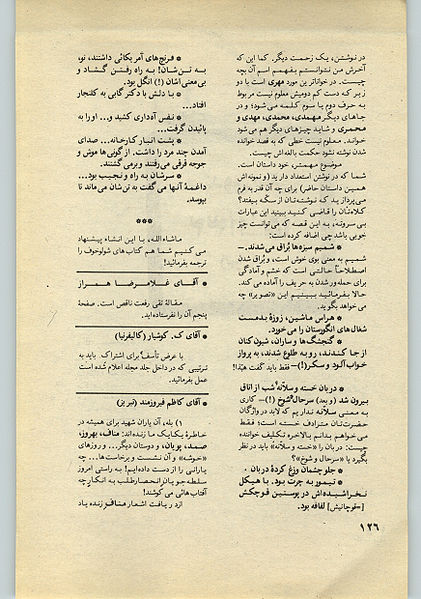 در نوشتن، یک زحمت دیگر. کما این که
آخرش من نتوانستم بفهمم اسم آن بچه
چیست. در خواناترین مورد مهری است با دو
زیر که دست کم دومیش معلوم نیست مربوط
به حرف دوم یا سوم کلمه می‌شود؛ و در
جاهای دیگر مهمدی، محمدی، مهدی و
محمری و شاید چیزهای دیگر هم می‌شود
خواند. معلوم نیست خطی که به قصد خوانده
شدن نوشته نشود حکمت بالغه‌اش چیست.
موضوع مهمتر، خود داستان است.
شما که در نوشتن استعداد دارید (و نمونه‌اش
همین داستان حاضر) برای چه آن قدر به فرم
می‌پردازید که نوشته‌تان از سکه بیفتد؟
کلاه‌تان را قاضی کنید ببینید این عبارات
بی‌سروته، به این قصه که می‌توانست چیز
جوبی باشد چی اضافه کرده است:
* شمیم سبزه‌ها بُراق می‌شدند. —
شمیم به معنی بوی خوش است، و بُراق شدن
اصطلاحاً حالتی است که خشم و آمادگی
برای حمله‌ور شدن به حریف را آماده می کند.
حالا بفرمائید ببینیم این «تصویر» چه
می‌خواهد بگوید.
* هراس ماشین، زوزهٔ بدمست
شغال‌های انگورستان را می‌خورد.
* گنجشگ‌ها و ساران، شیون کنان
از جا کندند، رو به طلوع شدند، به پرواز
خواب آلود و سکر (!) — فقط باید گفت هیّذا!
* دربان خسته و سلاّنه شب از اتاق
بیرون شد (و بعد) سرحال و شوخ (!) — کاری
به معنی سلاّنه نداریم که لابد در واژگان
حضرت‌تان مترادف خسته است؛ فقط
می‌خواهم بدانم بالاخره تکلیف خواننده
چیست: دربان را «خسته و سلاّنه» باید در نظر
بگیرد یا «سرحال و شوخ»؟
* جلو چشمان وزغ کردهٔ دربان.
* تیمور به چرت بود. با هیکل
نخراشیده‌اش در پوستین قوچکش
[=قوچانیش] لفافه بود.
* فرنج‌های آمریکائی داشتند، نو،
به تن‌شان! به راه رفتن گشاد و
بی‌معنی‌اشان (!) انگل بود.
* با دلش با دکتر گابی به کلنجار
افتاد...
* نفس آه‌داری کشید و... او را به
پائیدن گرفت...
* پشت انبار کارخانه... صدای
آمدن چند مرد را داشت. از گونی‌ها موش و
جوجه قرقی می‌رفتند و برمی‌گشتند.
* سرشان به راه و نجیب بود...
داغمهٔ آنها می‌گفت به تن‌شان می‌ماند تا
بپوسد.
***
ماشاءالله، با این انشاء پیشنهاد
می کنیم شما هم کتاب های شولوخوف را
ترجمه بفرمائید!
* آقای غلامرضا همراز
مقالهٔ تقی رفعت ناقص است. صفحهٔ
پنجم آن را نفرستاده‌اید.
* آقای ک. کوشیار (کالیفرنیا)
با عرض تأسف! برای اشتراک باید به
ترتیبی که در داخل جلد مجله اعلام شده است
عمل بفرمائید.
* آقای کاظم فیروزمند (تبریز)
۱) بله، آن یاران شهید برای همیشه در
خاطرهٔ یکایک ما زنده‌اند: مناف، بهروز،
صمد، پویان، و دوستان دیگر... و روزهای
«خوشه» و آن نشست و برخاست‌ها... چه
یارانی را از دست داده‌ایم! به راستی امروز
سلطه‌جویان انحصارطلب به انکار چه
آفتاب‌هائی می کوشند!
از دریافت اشعار مناف زنده یاد
۱۲۶